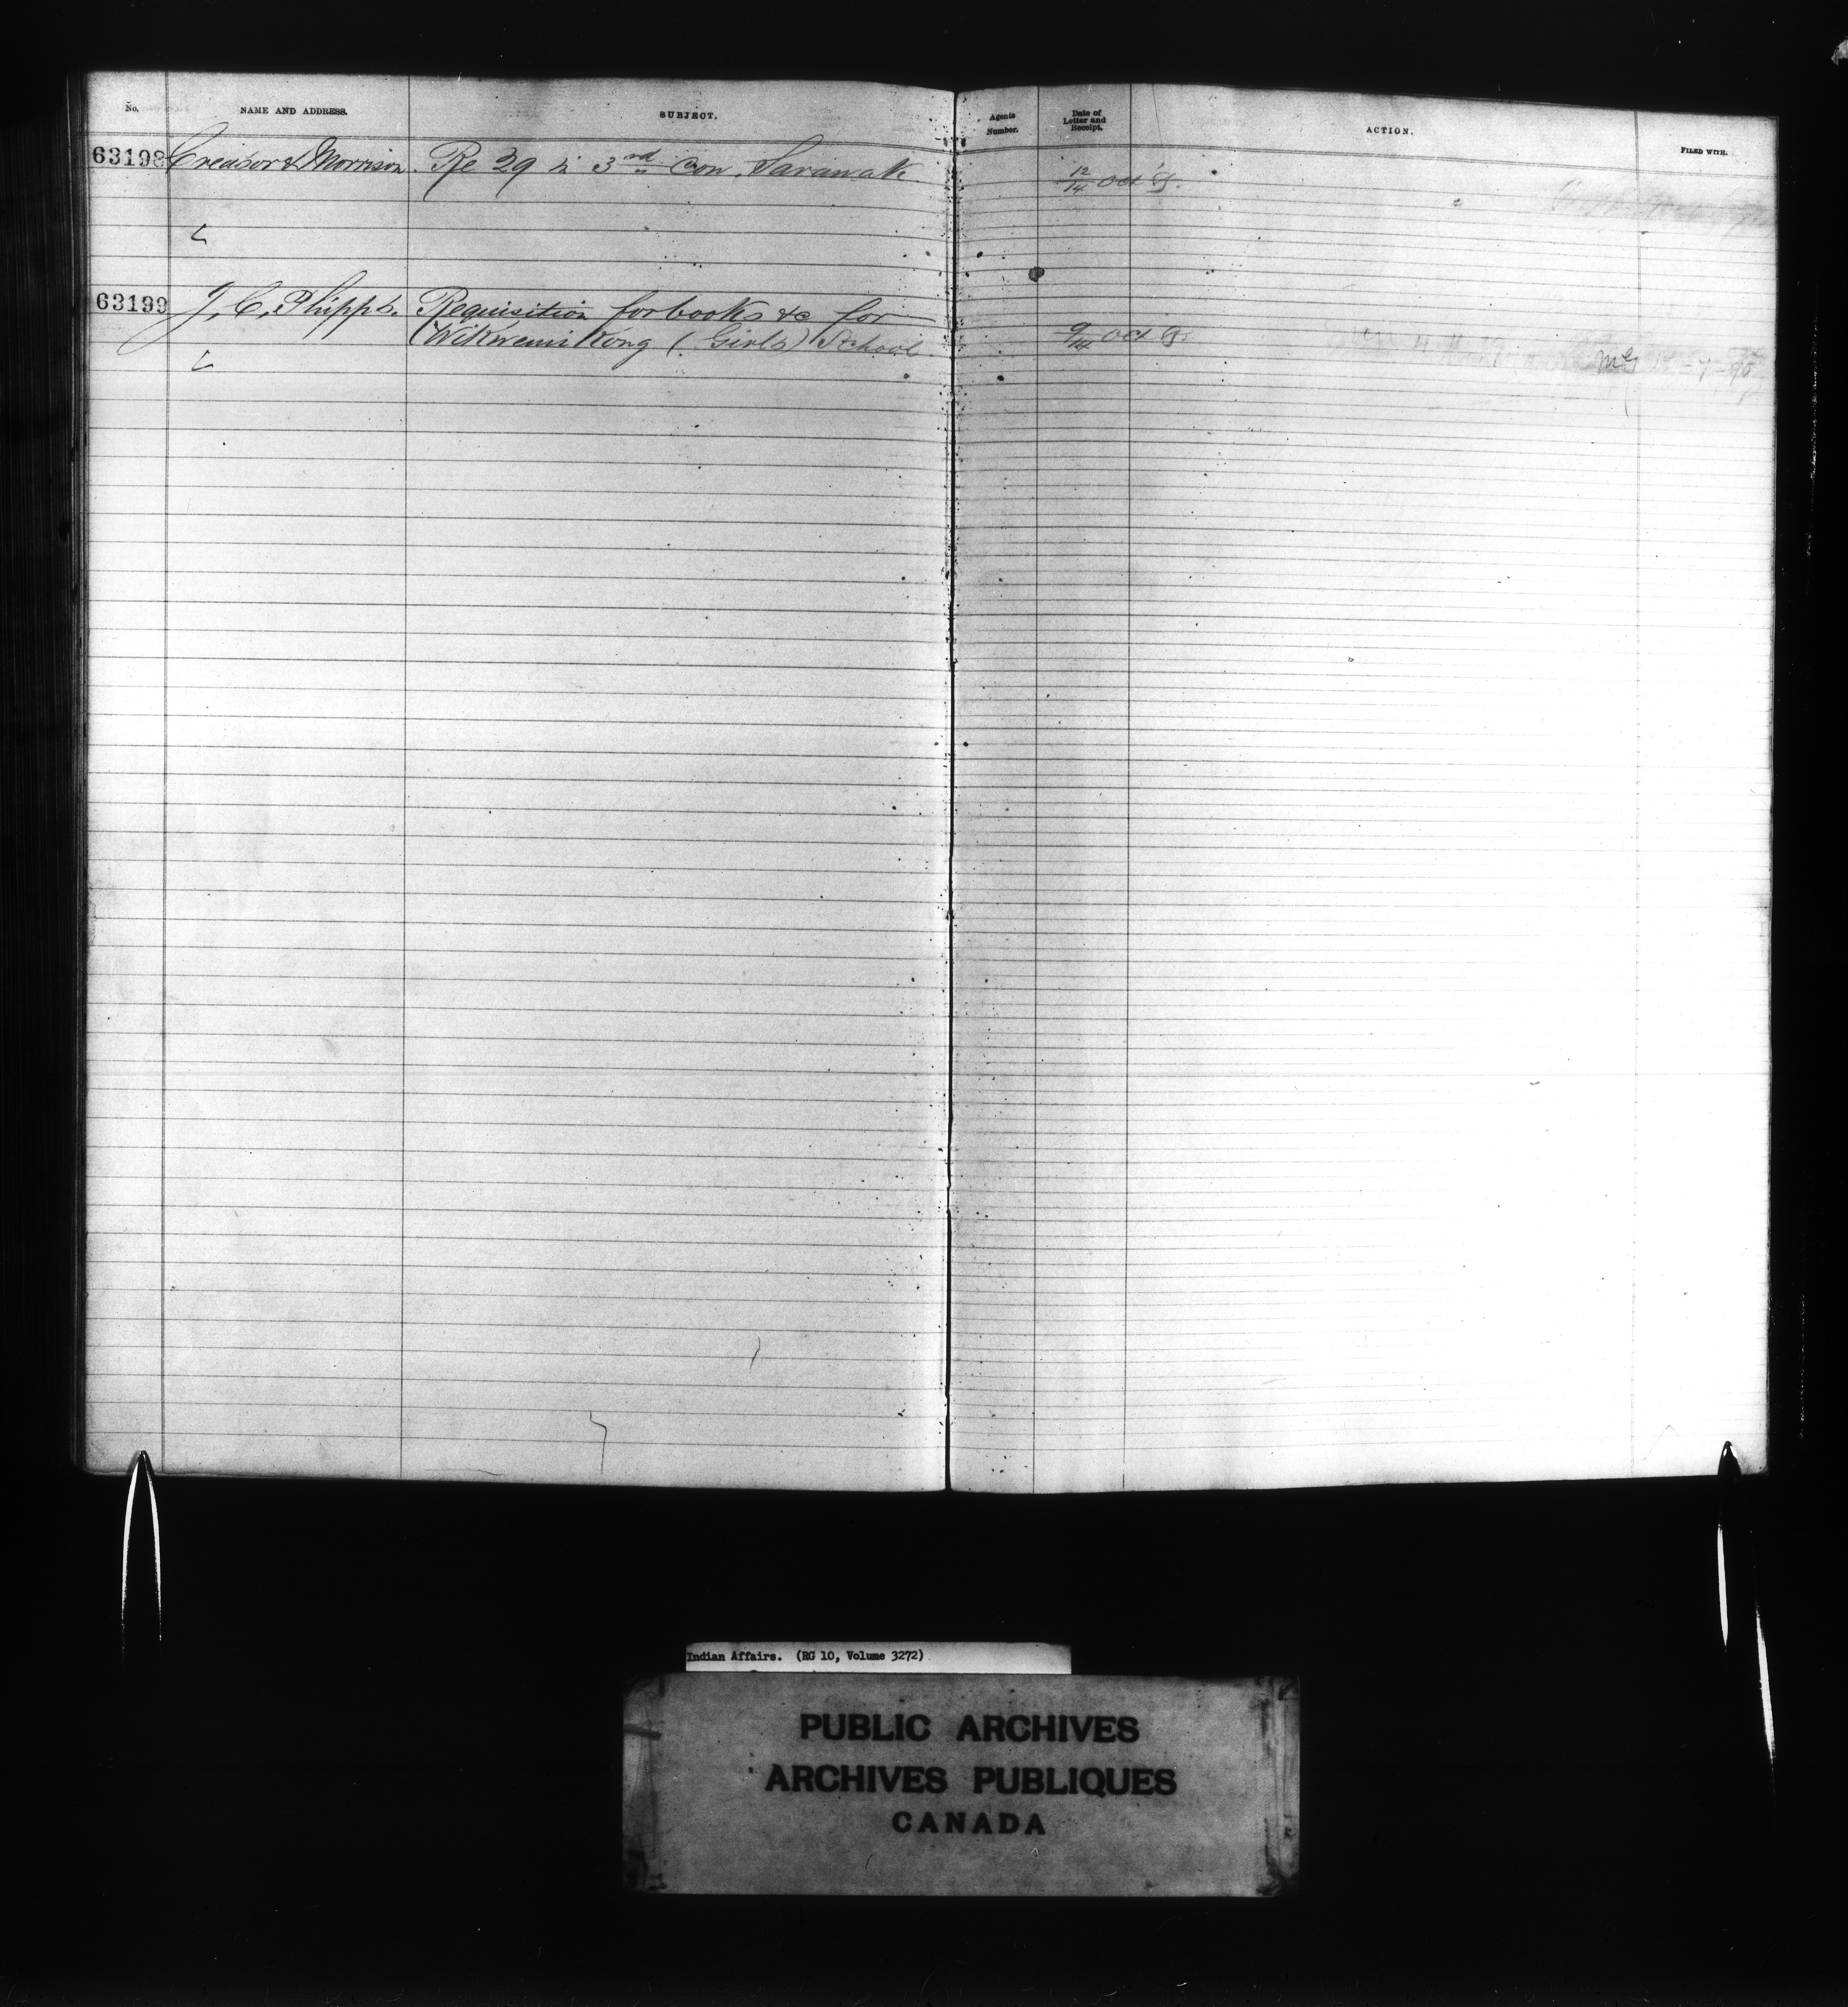 No. NAME AND ADDRESS. SUBJECT. Agents Number. Date of Letter and Receipt. ACTION. FILED WITH.
63198 Creasor & Morrison. Re 29 in 3rd Con. Sarawak 12/14 Oct
63199 J. C. Phipps. Requisition for books &c for
Wikwemikong (Girls) School 9/14 Oct
Indian Affairs. (RG 10, Volume 3272)
PUBLIC ARCHIVES
ARCHIVES PUBLIQUES
CANADA